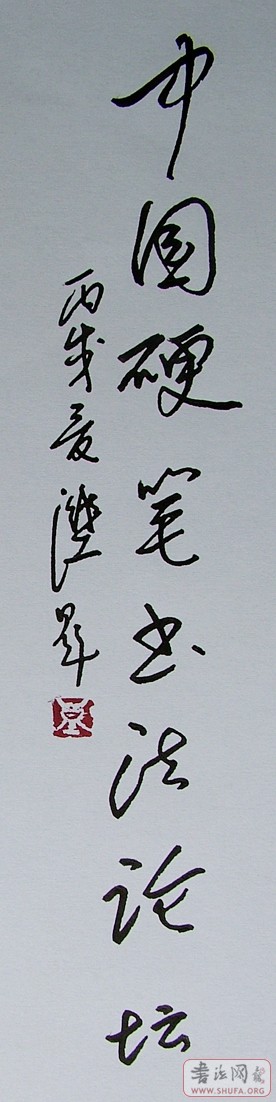 中国硬笔书法论坛
丙戌夏
书法网
WWW.SHUFA.ORG